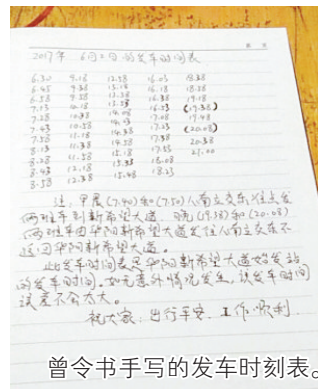 2017年 6月2日的发车时间表
6.30 9.18 12.58 16.03 18.38
6.45 9.38 13.18 16.18 18.58
6.58 9.58 13.38 16.38 19.18
7.13 10.18 13.53 16.53 (19.38)
7.28 10.38 14.08 17.08 19.48
7.43 10.58 17.23 (20.08)
7.58 11.18 14.38 17.38 20.38
8.13 11.38 14.58 17.53 21.00
8.28 11.58 15.18 18.08
8.43 12.18 15.33 18.23
8.58 12.38 15.48
注：早晨(7.40)和(7.50)从南立交东往点发
两班车到新希望大道．晚(19.38)和(20.08)
两班车由华阳新希望大道发往从南立交东不
返回华阳新希望大道。
此发车时间表是华阳新希望大道始发站
的发车时间．如无意外情况发生，该发车时间
误差不会太大。
祝大家：出行平安．工作顺利．
曾令书手写的发车时刻表。